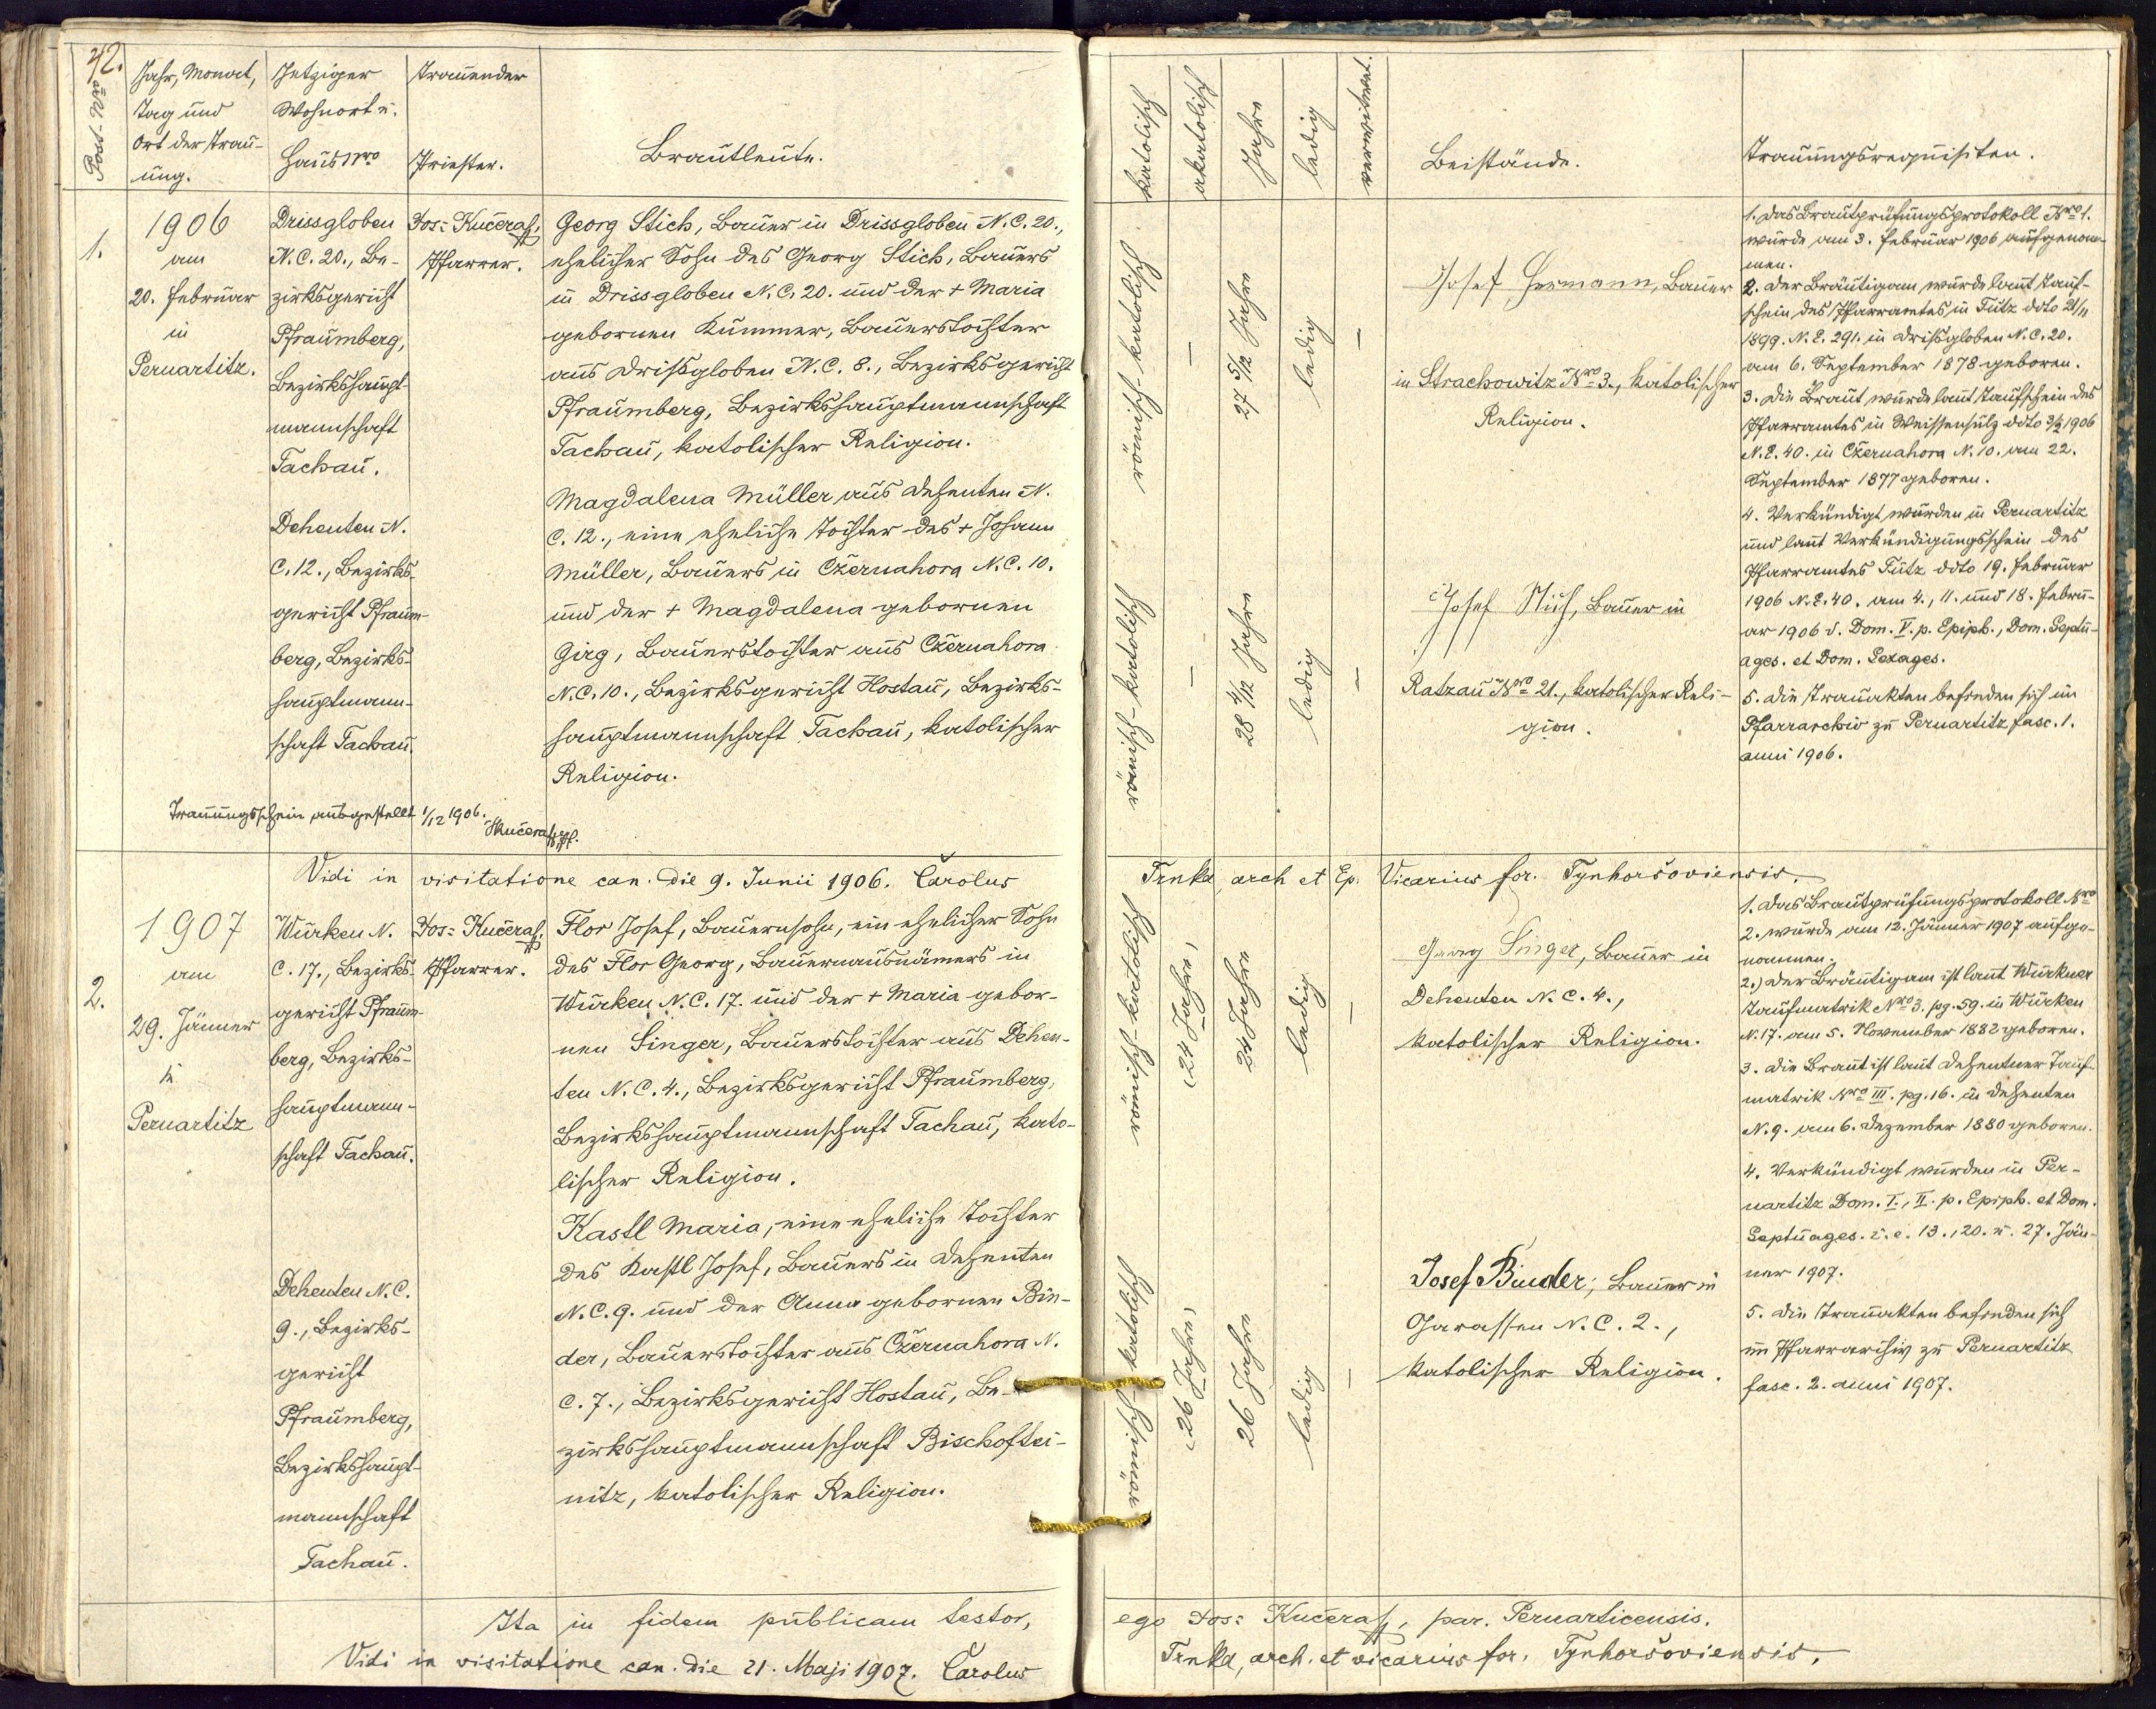 42.
Post-Nro
Jahr, Monat,
Tag und
Ort der Trau-
ung.
Jetziger
Wohnort u.
Haus Nro
Trauender
Priester.
Brautleute.
katolisch
akatolisch
Jahre
ledig
verwitwet.
Beistände.
Trauungsrequisiten.
1.
1906
am
20. Februar
in
Pernartitz.
Drissgloben
N.C. 20., Be-
zirksgericht
Pfraumberg,
Bezirkshaupt-
mannschaft
Tachau.
Dehenten N.
C. 12., Bezirks-
gericht Pfraum-
berg, Bezirks-
hauptmann-
schaft Tachau.
Jos: Kučera,
Pfarrer.
Georg Stich, Bauer in Drissgloben N.C. 20.,
ehelicher Sohn des Georg Stich, Bauers
in Drissgloben N.C. 20. und der + Maria
gebornen Kummer, Bauerstochter
aus Drißgloben N.C. 8., Bezirksgericht
Pfraumberg, Bezirkshauptmannschaft
Tachau, katolischer Religion.
Magdalena Müller aus Dehenten N.
C. 12., eine eheliche Tochter des + Johann
Müller, Bauers in Cžernahora N.C. 10.
und der + Magdalena gebornen
Girg, Bauerstochter aus Cžernahora
N.C. 10., Bezirksgericht Hostau, Bezirks-
hauptmannschaft Tachau, katolischer
Religion.
Trauungsschein ausgestellt 1/12 1906.
JKučera
römisch-katolisch
–
27 5/12 Jahre
ledig
–
römisch-katolisch
–
28 4/12 Jahre
ledig
–
Josef Hermann, Bauer
in Strachowitz Nro 3., katolischer
Religion.
Josef Stich, Bauer in
Ratzau Nro 21., katolischer Reli-
gion.
1. Das Brautprüfungsprotokoll Nro 1.
wurde am 3. Februar 1906 aufgenom-
men.
2. Der Bräutigam wurde laut Tauf-
schein des Pfarramtes in Tutz ddto 21/11
1899. N.E. 291. in Drißgloben N.C. 20.
am 6. September 1878 geboren.
3. Die Braut wurde laut Taufschein des
Pfarramtes in Weissensulz ddto 3/2 1906
N.E. 40. in Cžernahora N. 10. am 22.
September 1877 geboren.
4. Verkündigt wurden in Pernartitz
und laut Verkündigungsschein des
Pfarramtes Tutz ddto 19. Februar
1906 N.E. 40. am 4., 11. und 18. Febru-
ar 1906 d. Dom. V. p. Epiph., Dom. Septu-
ages. et Dom. Sexages.
5. Die Trauakten befinden sich im
Pfarrarchiv zu Pernartitz fasc. 1.
anni 1906.
Vidi in visitatione can. die 9. Junii 1906. Carolus Trnka, arch et Ep. Vicarius for. Tynhoršoviensis.
2.
1907
am
29. Jänner
in
Pernartitz
Wurken N.
C. 17., Bezirks-
gericht Pfraum-
berg, Bezirks-
hauptmann-
schaft Tachau.
Dehenten N.C.
9., Bezirks-
gericht
Pfraumberg,
Bezirkshaupt-
mannschaft
Tachau.
Jos: Kučera,
Pfarrer.
Flor Josef, Bauernsohn, ein ehelicher Sohn
des Flor Georg, Bauernausnämers in
Wurken N.C. 17. und der + Maria gebor-
nen Singer, Bauerstochter aus Dehen-
ten N.C. 4., Bezirksgericht Pfraumberg,
Bezirkshauptmannschaft Tachau, kato-
lischer Religion.
Kastl Maria, eine eheliche Tochter
des Kastl Josef, Bauers in Dehenten
N.C. 9. und der Anna gebornen Bin-
der, Bauerstochter aus Cžernahora N.
C. 7., Bezirksgericht Hostau, Be-
zirkshauptmannschaft Bischoftei-
nitz, katolischer Religion.
römisch-katolisch
(24 Jahre)
24 Jahre
ledig
–
römisch-katolisch
(26 Jahre)
26 Jahre
ledig
–
Georg Singer, Bauer in
Dehenten N.C. 4.,
katolischer Religion.
Josef Binder, Bauer in
Garassen N.C. 2.,
katolischer Religion.
1. Das Brautprüfungsprotokoll Nro
2. wurde am 12. Jänner 1907 aufge-
nommen.
2.) Der Bräutigam ist laut Wurkner
Taufmatrik Nro 3. pg. 59. in Wurken
N. 17. am 5. November 1882 geboren.
3. Die Braut ist laut Dehentner Tauf-
matrik Nro III. pg. 16. in Dehenten
N. 9. am 6. Dezember 1880 geboren.
4. Verkündigt wurden in Per-
nartitz Dom. I., II. p. Epiph. et Dom.
Septuages. i. e. 13., 20. u. 27. Jän-
ner 1907.
5. Die Trauakten befinden sich
im Pfarrarchiv zu Pernartitz
fasc. 2. anni 1907.
Ita in fidem publicam testor, ego Jos: Kučera, par. Pernarticensis.
Vidi in visitatione can. die 21. Maji 1907. Carolus Trnka, arch. et vicarius for. Tynhoršoviensis.